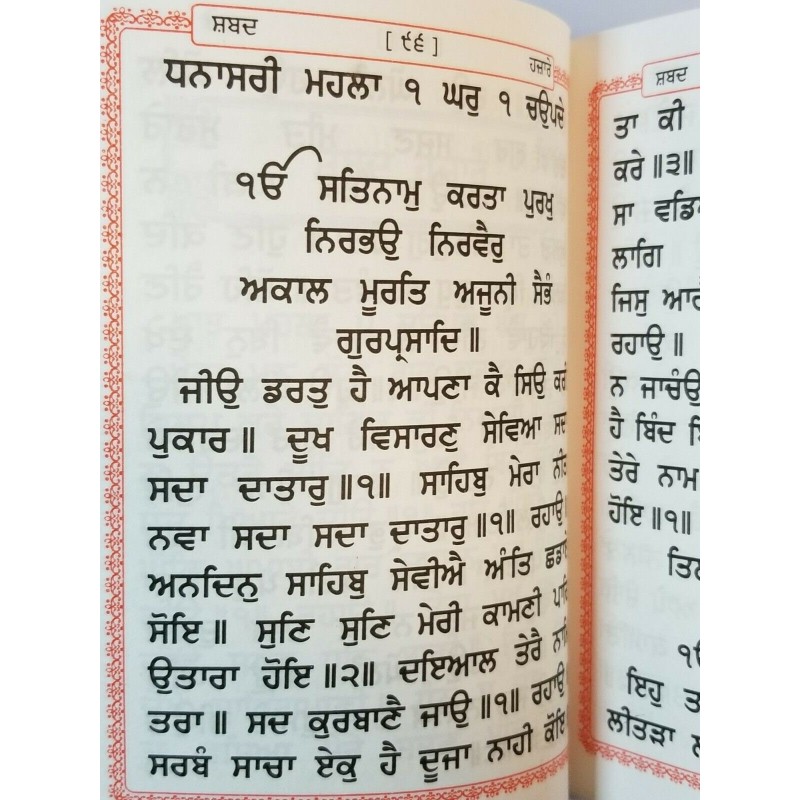 ਸ਼ਬਦ
[ ੯੬ ]
ਹਜ਼ਾਰੇ
ਧਨਾਸਰੀ ਮਹਲਾ ੧ ਘਰੁ ੧ ਚਉਪਦੇ
ੴ ਸਤਿਨਾਮੁ ਕਰਤਾ ਪੁਰਖੁ
ਨਿਰਭਉ ਨਿਰਵੈਰੁ
ਅਕਾਲ ਮੂਰਤਿ ਅਜੂਨੀ ਸੈਭੰ
ਗੁਰਪ੍ਰਸਾਦਿ॥
ਜੀਉ ਡਰਤੁ ਹੈ ਆਪਣਾ ਕੈ ਸਿਉ
ਪੁਕਾਰ॥ ਦੂਖ ਵਿਸਾਰਣੁ ਸੇਵਿਆ ਸਦਾ
ਸਦਾ ਦਾਤਾਰੁ॥੧॥ ਸਾਹਿਬੁ ਮੇਰਾ
ਨਵਾ ਸਦਾ ਸਦਾ ਦਾਤਾਰੁ॥੧॥ ਰਹਾਉ॥
ਅਨਦਿਨੁ ਸਾਹਿਬੁ ਸੇਵੀਐ ਅੰਤਿ
ਸੋਇ॥ ਸੁਣਿ ਸੁਣਿ ਮੇਰੀ ਕਾਮਣੀ
ਉਤਾਰਾ ਹੋਇ॥੨॥ ਦਇਆਲ ਤੇਰੈ
ਤਰਾ॥ ਸਦ ਕੁਰਬਾਣੈ ਜਾਉ॥੧॥ ਰਹਾਉ॥
ਸਰਬੰ ਸਾਚਾ ਏਕੁ ਹੈ ਦੂਜਾ ਨਾਹੀ ਕੋਇ
ਸ਼ਬਦ
ਤਾ ਕੀ
ਕਰੇ॥੩॥
ਸਾ
ਲਾਗਿ
ਜਿਸੁ
ਰਹਾਉ॥
ਨ ਜਾਚੰਉ
ਹੈ ਬਿੰਦ
ਤੇਰੇ ਨਾਮ
ਹੋਇ॥੧॥
ੴ
ਇਹੁ
ਲੀਤੜਾ